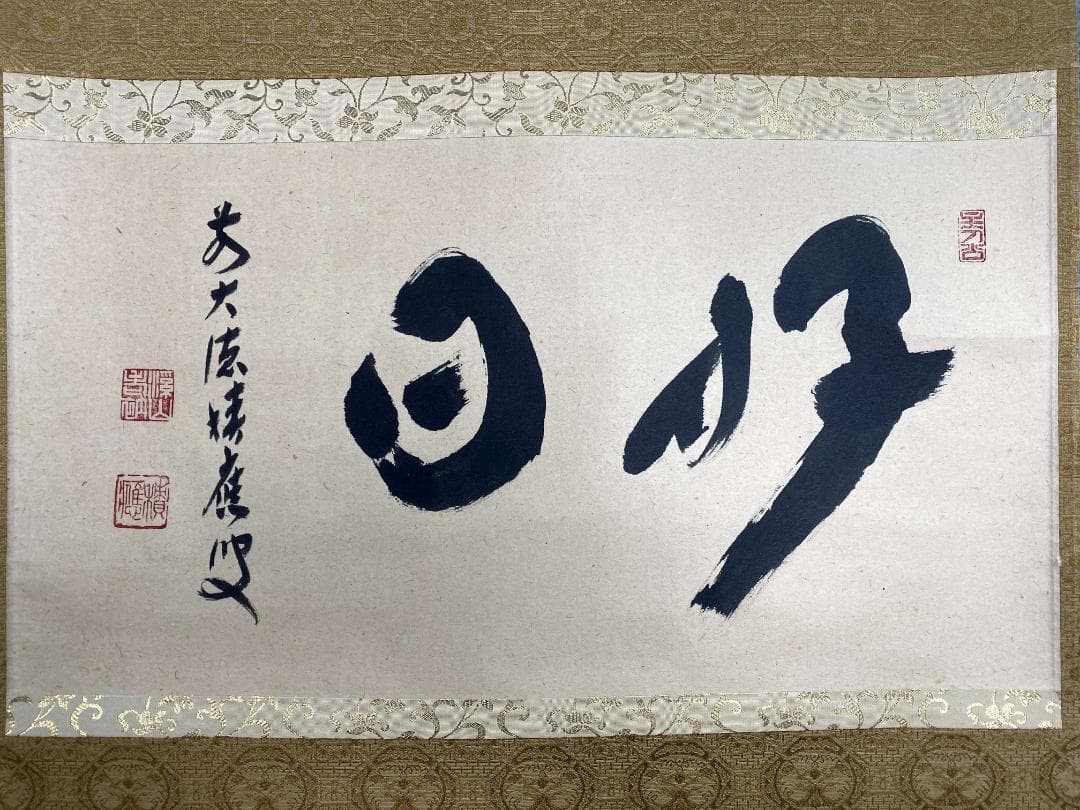 好日
前大徳積應叟
積應